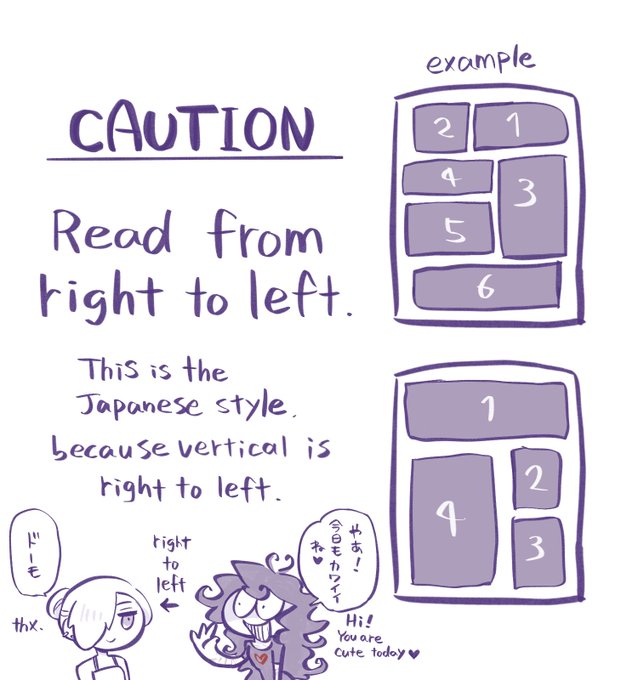 CAUTION
Read from
right to left.
This is the
Japanese style.
because vertical is
right to left.
example
2 1
4 3
5
6
1
4 2
3
やあ!
今日モカワイイ
ね♥
Hi!
You are
cute today♥
right
to
left
←
ドーモ
thx.